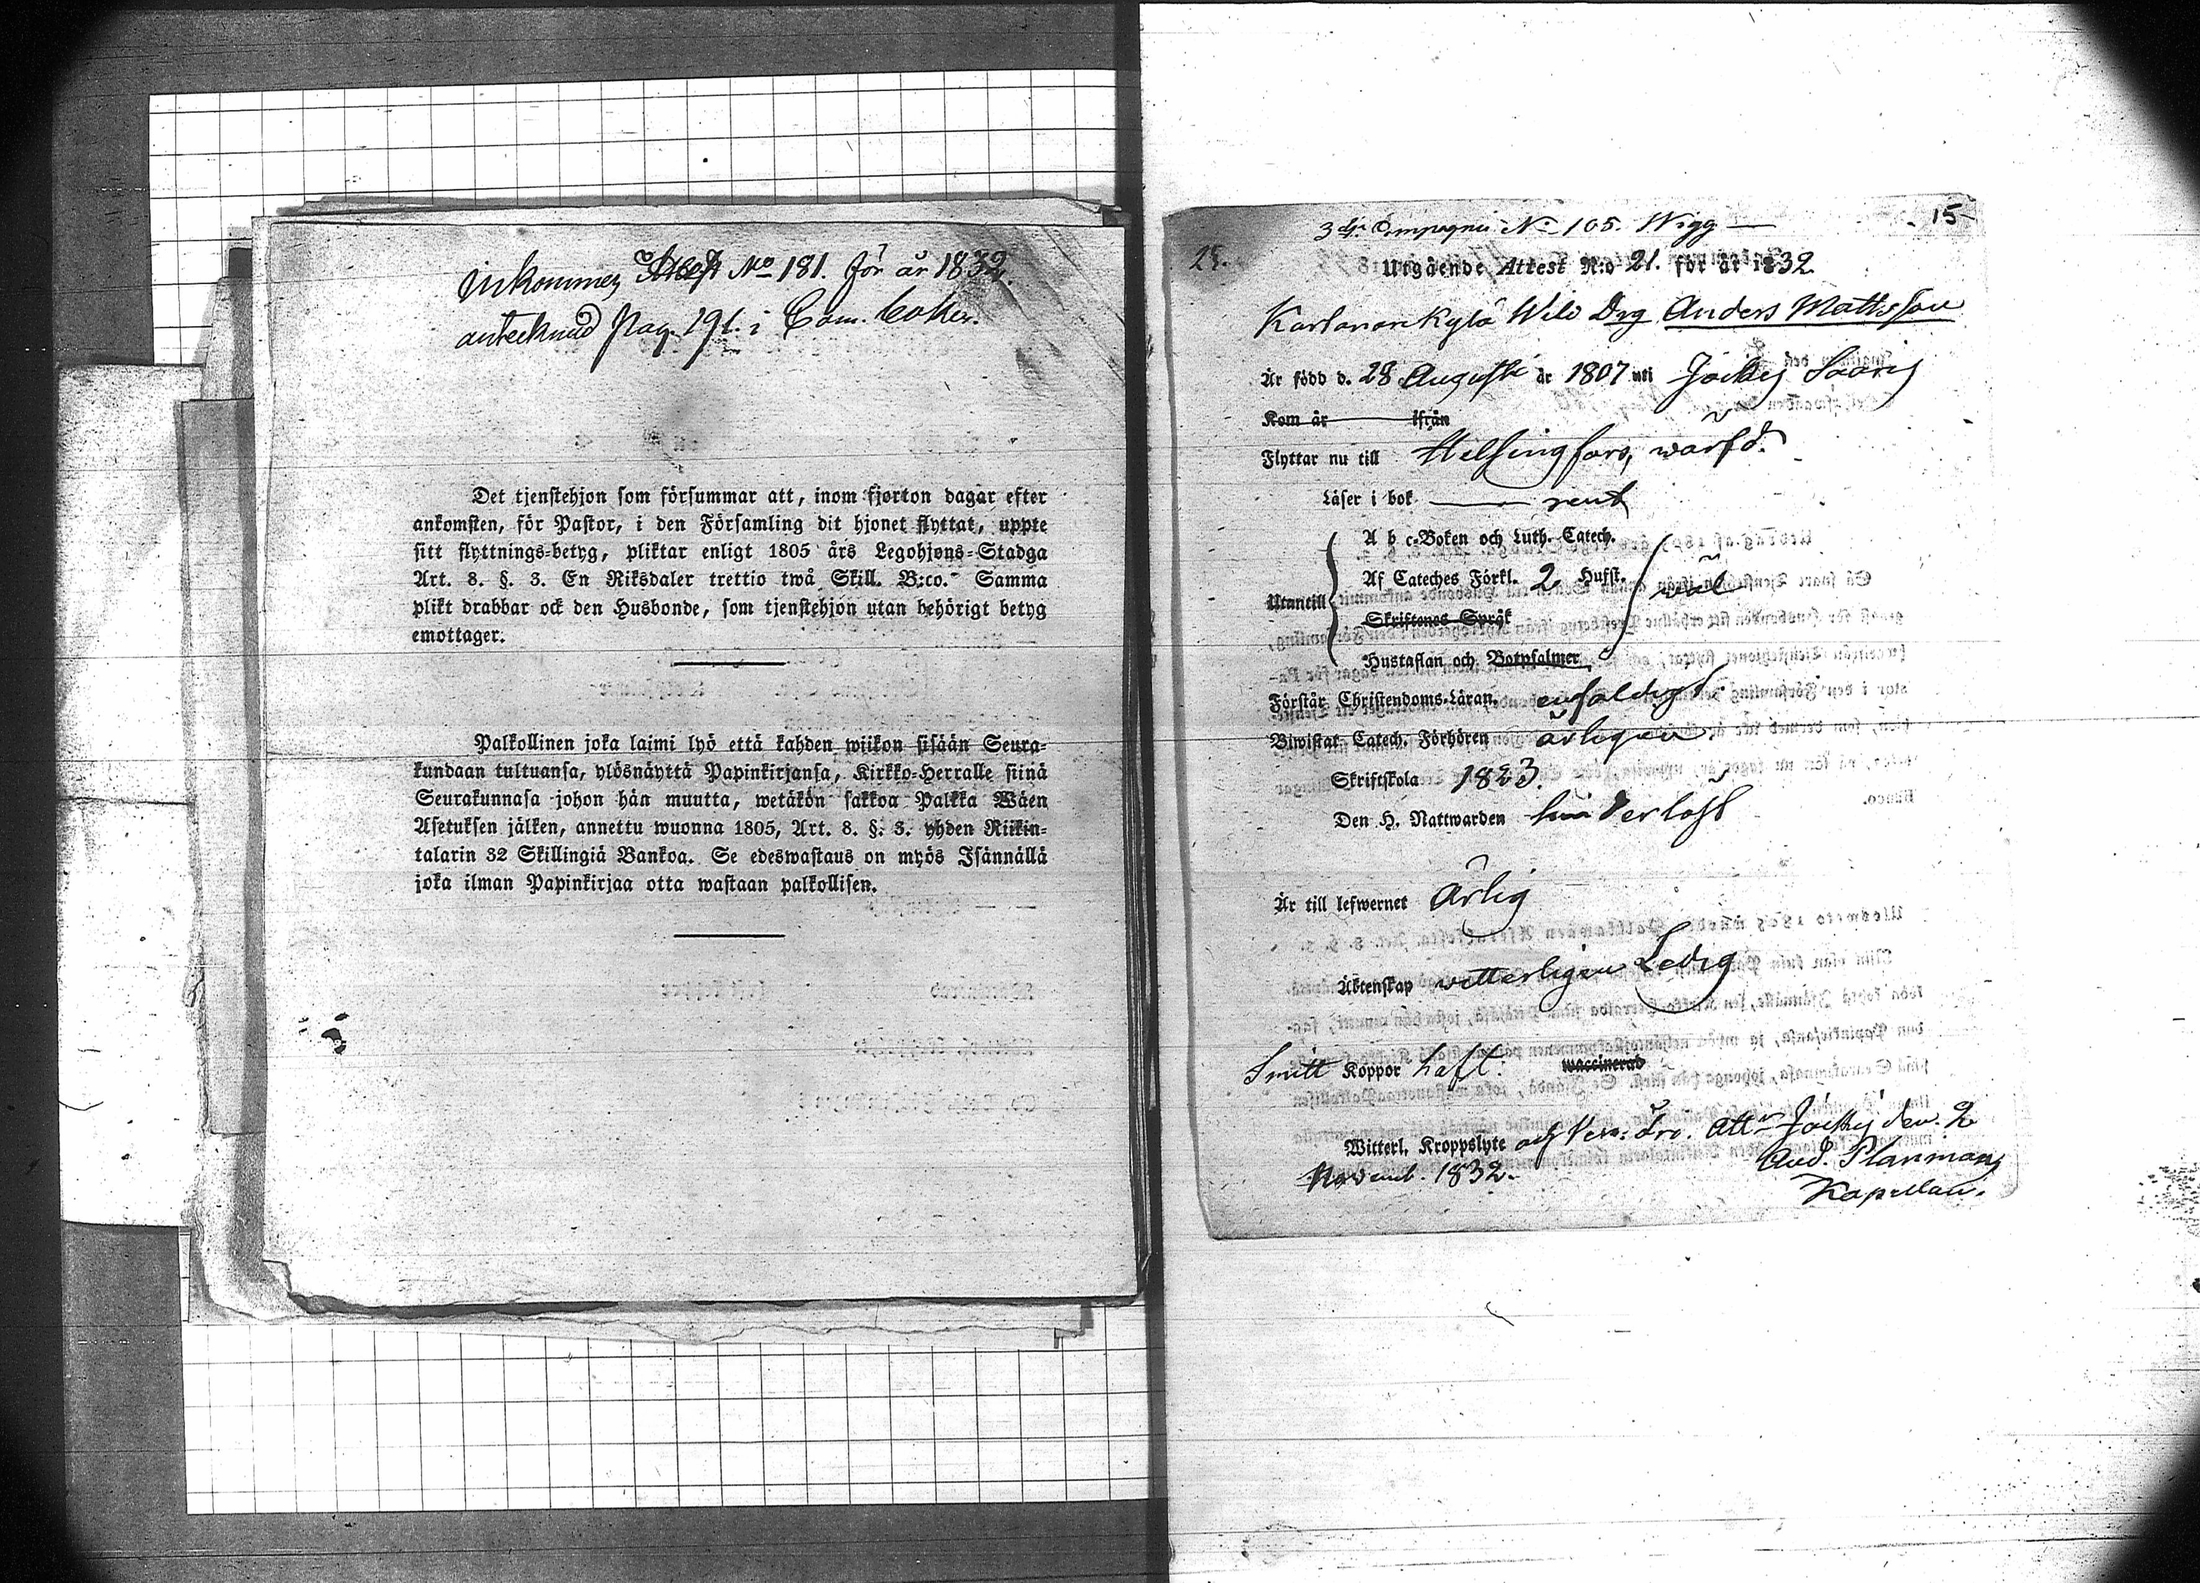 Inkommen Attest No 181. för år 1832.
antecknad pag. 191. i Com. boken.
Det tjenstehjon som försummar att, inom fjorton dagar efter
ankomsten, för Pastor, i den Församling dit hjonet flyttat, uppte
sitt flyttnings-betyg, pliktar enligt 1805 års Legohjons-Stadga
Art. 8. §. 3. En Riksdaler trettio twå Skill. B:co. Samma
plikt drabbar ock den Husbonde, som tjenstehjon utan behörigt betyg
emottager.
Palkollinen joka laimi lyö että kahden wiikon sisään Seura-
kundaan tultuansa, ylösnäyttä Papinkirjansa, Kirkko-Herralle siinä
Seurakunnasa johon hän muutta, wetäkön sakkoa Palkka Wäen
Asetuksen jälken, annettu wuonna 1805, Art. 8. §. 3. yhden Riikin-
talarin 32 Skillingiä Bankoa. Se edeswastaus on myös Isännällä
joka ilman Papinkirjaa otta wastaan palkollisen.
15
3dje Compagnie No 105. Wigg
25.
Utgående Attest N:o 21. för år 1832.
Kartanonkylä Drg Anders Mattsson
Är född d. 28 Augusti år 1807 uti Jockis
Kom år ifrån
Flyttar nu till Helsingfors, wärfd.
Läser i bok rent
A b c-Boken och Luth. Catech.
Af Cateches Förkl. 2 Hufst.
Utantill wäl
Skriftenes Språk
Hustaflan och Botpsalmer
Förstår Christendoms-Läran, enfaldigt.
Biwistat Catech. Förhören årligen.
Skriftskola 1823.
Den H. Nattwarden hinderlöst
Är till lefwernet Ärlig
Äktenskap wetterligen Ledig
Smitt Koppor haft. waccinerad
Witterl. Kroppslyte Jockis den 2
Novemb. 1832. And. Planman
Kapellan.